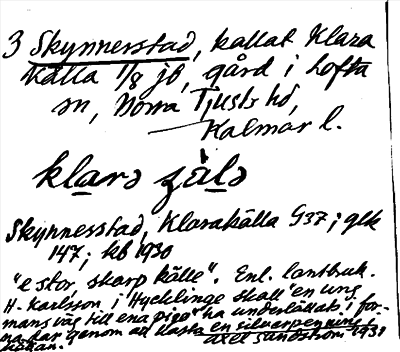 3 Skynnerstad, kallat Klara
källa 1/8 jb, gård i Lofta
sn, Norra Tjusts hd,
Kalmar l.
klarə ʒälə
Skynnesstad, Klarakälla G37; glk
147; kb 1930
"e stor, skarp källe". Enl. lantbruk.
H. Karlsson i Hycklinge skall "en ung
mans väg till ena piga" ha underlättats i for-
na dar genom att kasta en silverpenning i
källan. Axel Sundström 1931